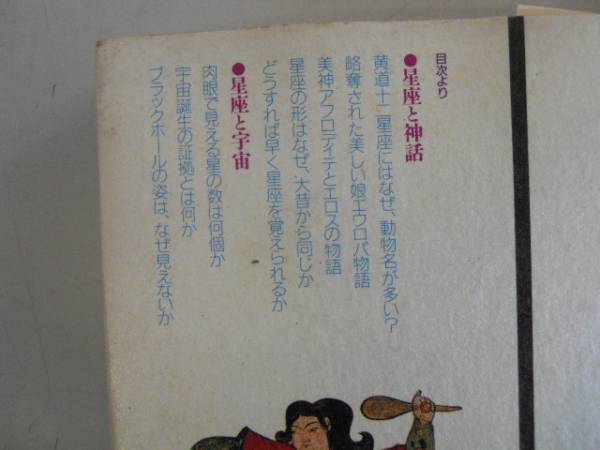 目次より
●星座と神話
黄道十二星座にはなぜ、動物名が多い?
略奪された美しい娘エウロパ物語
美神アフロディテとエロスの物語
星座の形はなぜ、大昔から同じか
どうすれば早く星座を覚えられるか
●星座と宇宙
肉眼で見える星の数は何個か
宇宙誕生の証拠とは何か
ブラックホールの姿は、なぜ見えないか